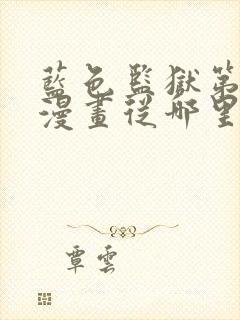 藍色監獄第
漫畫從哪里
覃雲